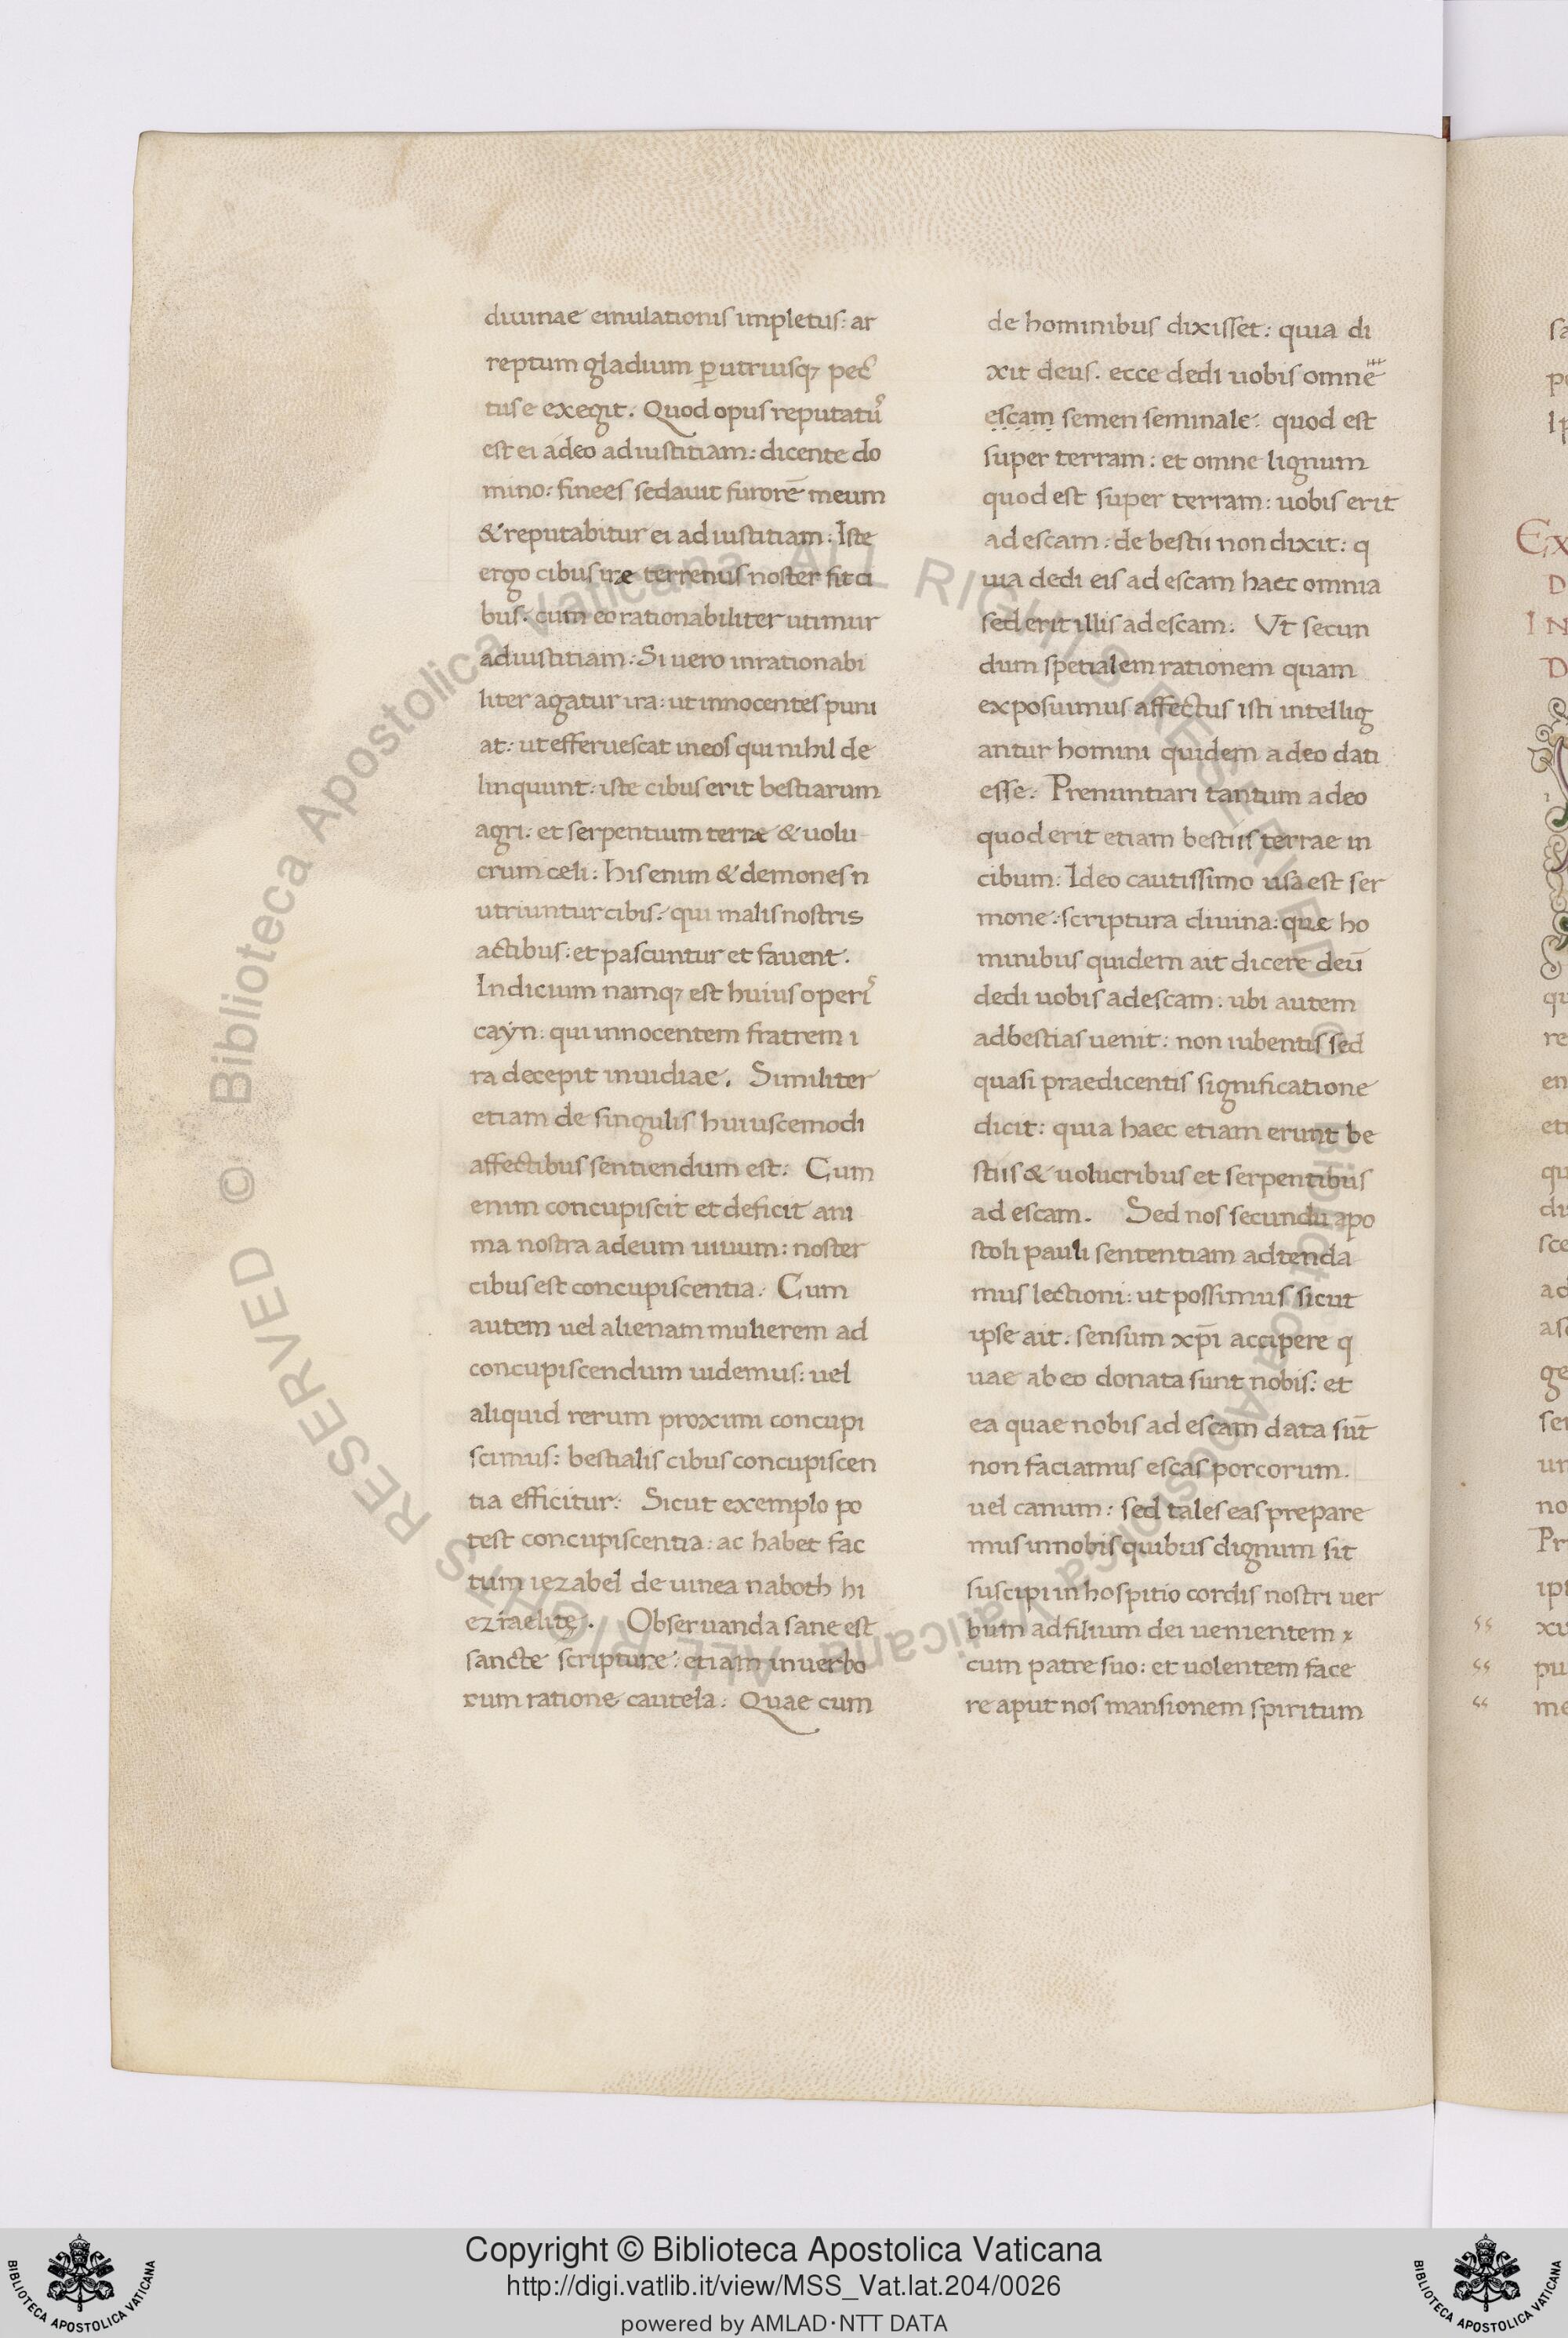 diuinae emulationis impletus: ar
reptum gladium ꝑ utriusq; pec̉
tus exegit. Quod opus reputatu᷒
est ei adeo ad iustitiam: dicente do
mino: finees sedauit furorē meum
& reputabitur ei ad iustitiam: Iste
ergo cibus irae terrenus noster fit ci
bus: cum eo rationabiliter utimur
ad iustitiam: Si uero inrationabi
liter agatur ira: ut innocentes puni
at: ut efferuescat in eos qui nihil de
linquunt: iste cibus erit bestiarum
agri: et serpentium terrae & uolu
crum celi: his enim & demones n
utriuntur cibis: qui malis nostris
actibus: et pascuntur et fauent.
Indicium namq; est huius operi᷒
cayn: qui innocentem fratrem i
ra decepit inuidiae. Similiter
etiam de singulis huiuscemodi
affectibus sentiendum est: Cum
enim concupiscit et deficit ani
ma nostra adeum uiuum: noster
cibus est concupiscentia: Cum
autem uel alienam mulierem ad
concupiscendum uidemus: uel
aliquid rerum proximi concupi
scimus: bestialis cibus concupiscen
tia efficitur: Sicut exemplo po
test concupiscentia: ac habet fac
tum iezabel de uinea naboth hi
ezraelitę. Obseruanda sane est
sancte scripturae: etiam in uerbo
rum ratione cautela: Quae cum
de hominibus dixisset: quia di
xit deus. ecce dedi uobis omne
escam semen seminale: quod est
super terram: et omne lignum
quod est super terram: uobis erit
ad escam: de bestii non dixit: q
uia dedi eis ad escam haec omnia
sed erit illis ad escam: Vt secun
dum spetialem rationem quam
exposuimus affectus isti intellig
antur homini quidem adeo dati
esse: Prenuntiari tantum adeo
quod erit etiam bestiis terrae in
cibum: Ideo cautissimo usa est ser
mone: scriptura diuina: quae ho
minibus quidem ait dicere deū
dedi uobis ad escam: ubi autem
ad bestias uenit: non iubentis sed
quasi praedicentis significatione
dicit: quia haec etiam erunt be
stiis & uolucribus et serpentibus
ad escam. Sed nos secundu apo
stoli pauli sententiam adtenda
mus lectioni: ut possimus sicut
ipse ait. sensum xp̄i accipere q
uae ab eo donata sunt nobis: et
ea quae nobis ad escam data sūt
non faciamus escas porcorum.
uel canum: sed tales eas prepare
mus in nobis quibus dignum sit
suscipi in hospitio cordis nostri uer
bum ad filium dei uenientem
cum patre suo: et uolentem face
re aput nos mansionem spiritum
Copyright © Biblioteca Apostolica Vaticana
http://digi.vatlib.it/view/MSS_Vat.lat.204/0026
powered by AMLAD·NTT DATA